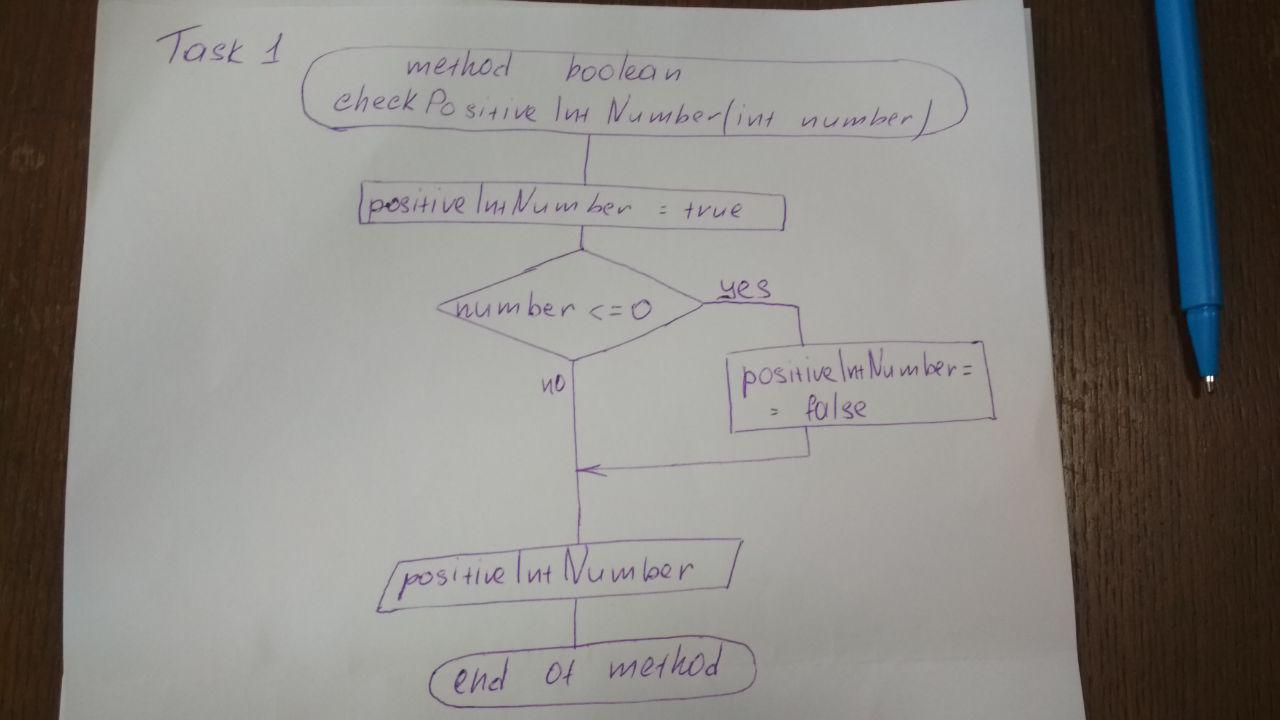 Task 1
method boolean
checkPositiveIntNumber(int number)
positiveIntNumber = true
number <= 0
yes
no
positiveIntNumber =
= false
positiveIntNumber
end of method